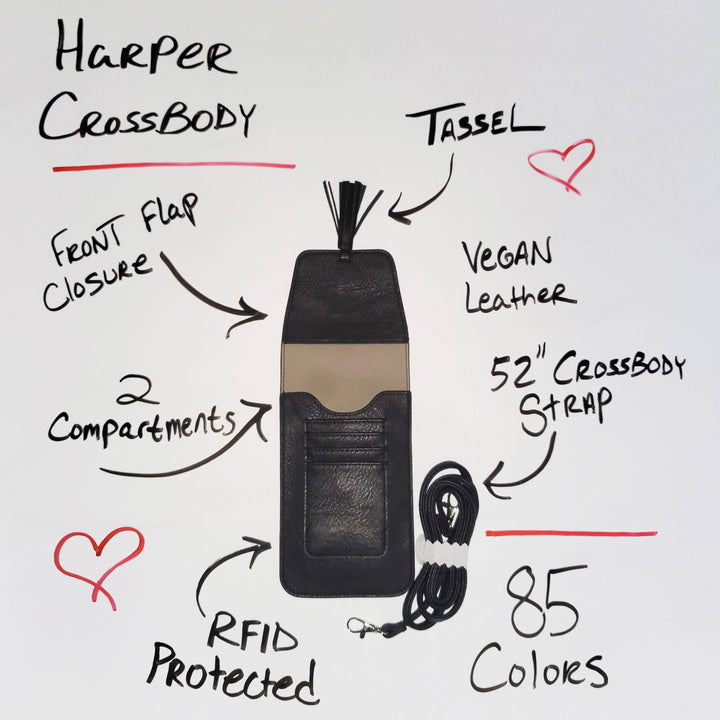 HARPER
CROSSBODY
TASSEL
FRONT Flap
Closure
VEGAN
Leather
2
Compartments
52" CROSSBODY
StRAP
RFID
Protected
85
Colors